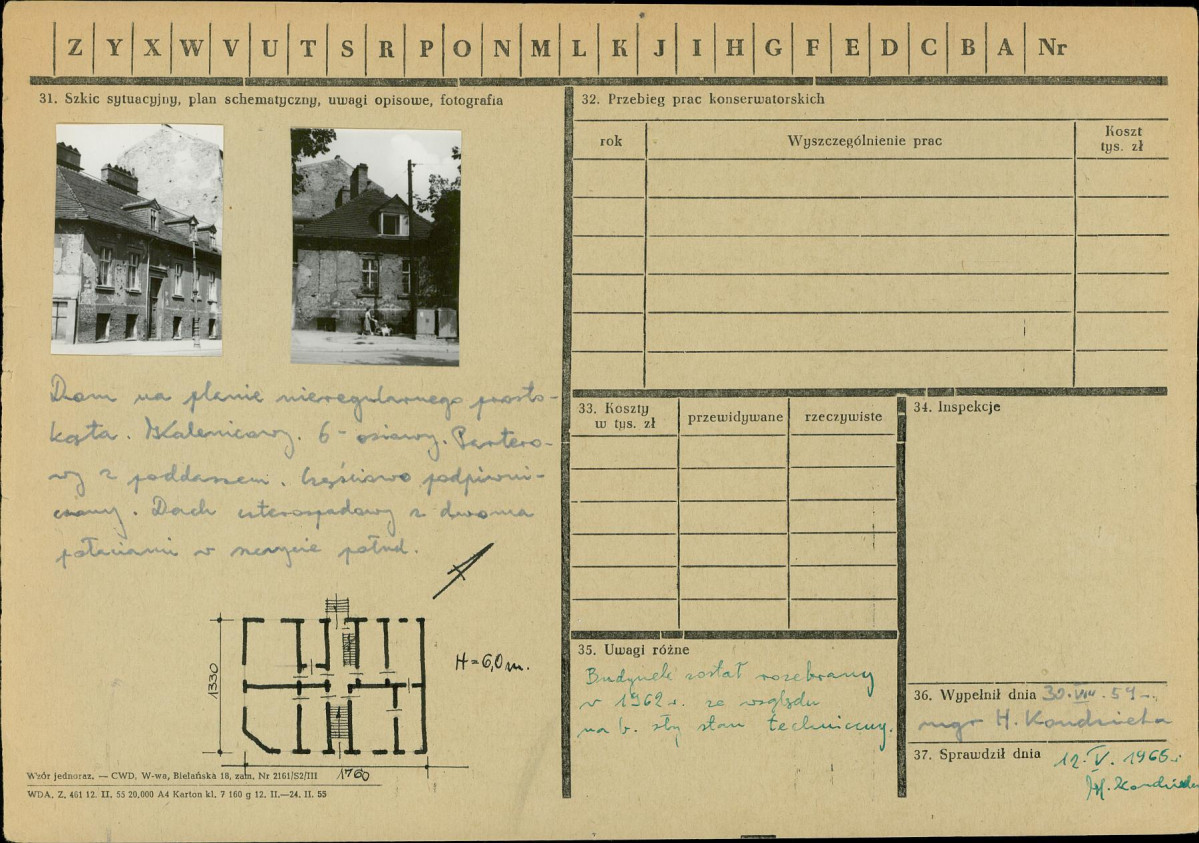 Z Y X W V U T S R P O N M L K J I H G F E D C B A Nr
31. Szkic sytuacyjny, plan schematyczny, uwagi opisowe, fotografia
Dom na planie nieregularnego prosto-
kąta. Kalenicowy. 6-osiowy. Partero-
wy z poddaszem. Częściowo podpiwni-
czony. Dach czterospadowy z dwoma
połaciami w szczycie połud.
H=6,0 m.
1330
1760
Wzór jednoraz. — CWD, W-wa, Bielańska 18, zam. Nr 2161/S2/III
WDA. Z. 461 12. II. 55 20.000 A4 Karton kl. 7 160 g 12. II.—24. II. 55
32. Przebieg prac konserwatorskich
rok
Wyszczególnienie prac
Koszt
tys. zł
33. Koszty
w tys. zł
przewidywane
rzeczywiste
34. Inspekcje
35. Uwagi różne
Budynek został rozebrany
w 1962 r. ze względu
na b. zły stan techniczny.
36. Wypełnił dnia 30.VIII.59 r.
mgr H. Kondziela
37. Sprawdził dnia 12.V.1965 r.
H. Kondziela